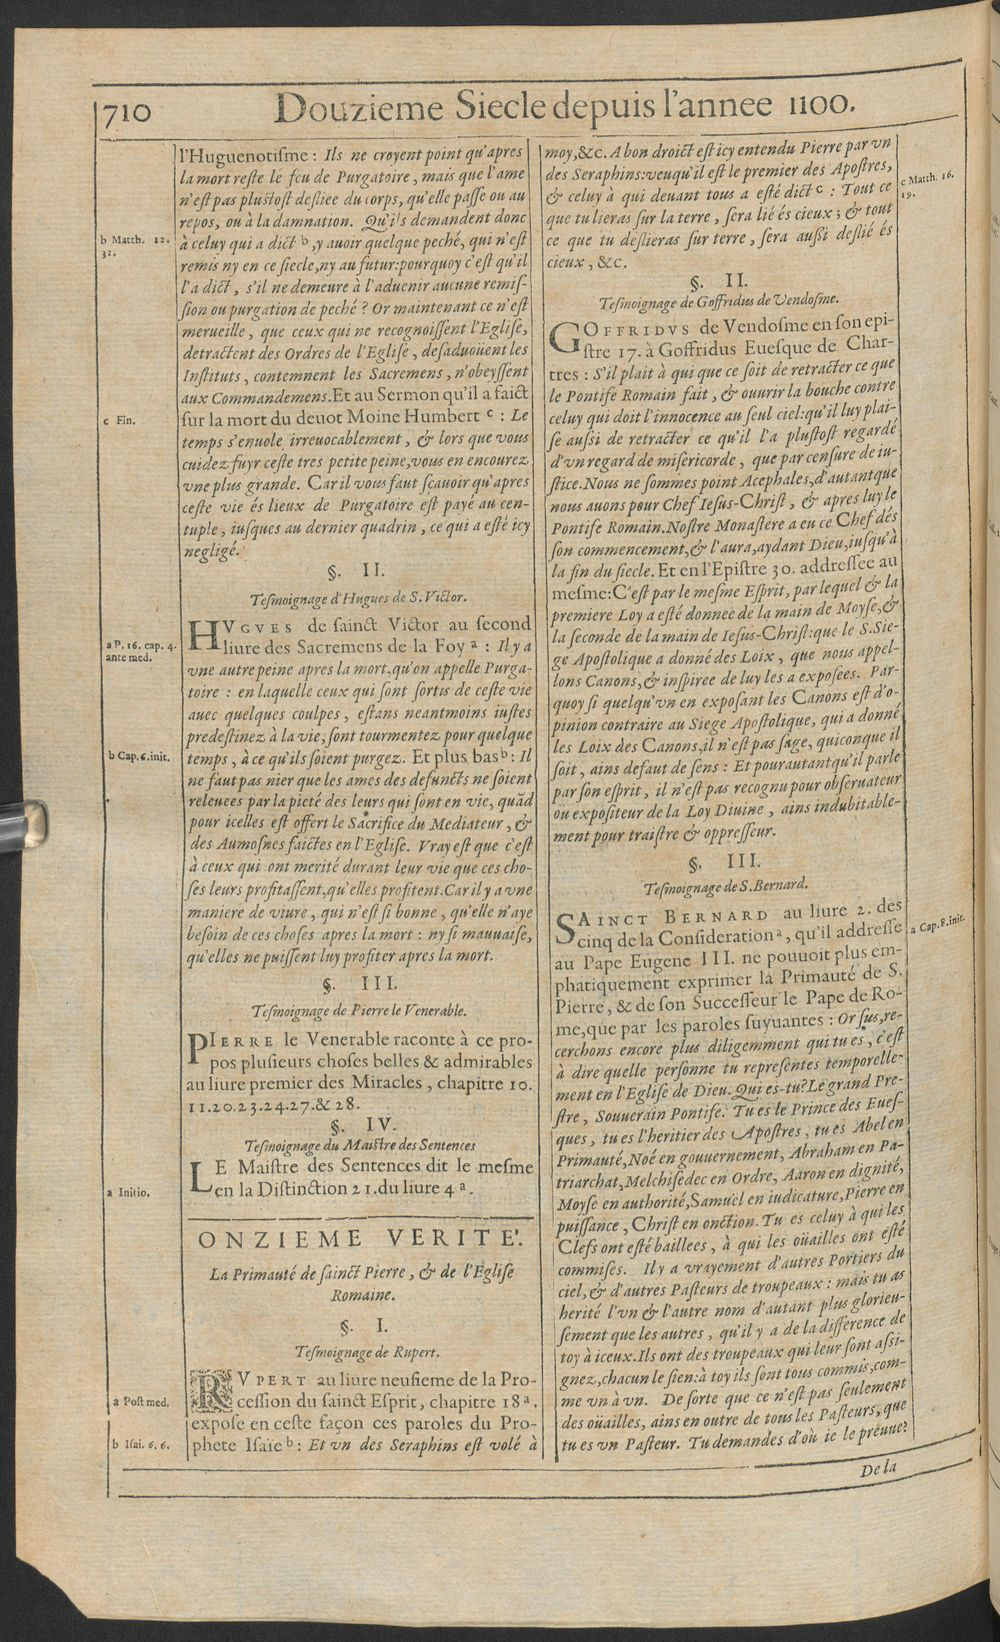 710
Douzieme Siecle depuis l'annee 1100.
l'Huguenotisme : Ils ne croyent point qu'apres
la mort reste le feu de Purgatoire, mais que l'ame
n'est pas plustost desliee du corps, qu'elle passe ou au
repos, ou à la damnation. Qu'ils demandent donc
à celuy qui a dict b, y auoir quelque peché, qui n'est
remis ny en ce siecle, ny au futur: pourquoy c'est qu'il
l'a dict, s'il ne demeure à l'aduenir aucune remis-
sion ou purgation de peché ? Or maintenant ce n'est
merueille, que ceux qui ne recognoissent l'Eglise,
detractent des Ordres de l'Eglise, desaduoüent les
Instituts, contemnent les Sacremens, n'obeyssent
aux Commandemens. Et au Sermon qu'il a faict
sur la mort du deuot Moine Humbert c : Le
temps s'enuole irreuocablement, & lors que vous
cuidez fuyr ceste tres petite peine, vous en encourez
vne plus grande. Car il vous faut sçauoir qu'apres
ceste vie és lieux de Purgatoire est payé au cen-
tuple, iusques au dernier quadrin, ce qui a esté icy
negligé.
b Matth. 12.
32.
c Fin.
§. II.
Tesmoignage d'Hugues de S. Victor.
HVGVES de sainct Victor au second
liure des Sacremens de la Foy a : Il y a
vne autre peine apres la mort, qu'on appelle Purga-
toire : en laquelle ceux qui sont sortis de ceste vie
auec quelques coulpes, estans neantmoins iustes
predestinez à la vie, sont tourmentez pour quelque
temps, à ce qu'ils soient purgez. Et plus bas b : Il
ne faut pas nier que les ames des defuncts ne soient
releuees par la pieté des leurs qui sont en vie, quãd
pour icelles est offert le Sacrifice du Mediateur, &
des Aumosnes faictes en l'Eglise. Vray est que c'est
à ceux qui ont merité durant leur vie que ces cho-
ses leurs profitassent, qu'elles profitent. Car il y a vne
maniere de viure, qui n'est si bonne, qu'elle n'aye
besoin de ces choses apres la mort : ny si mauuaise,
qu'elles ne puissent luy profiter apres la mort.
a P. 16. cap. 4.
ante med.
b Cap. 6. init.
§. III.
Tesmoignage de Pierre le Venerable.
PIERRE le Venerable raconte à ce pro-
pos plusieurs choses belles & admirables
au liure premier des Miracles, chapitre 10.
11.20.23.24.27.& 28.
§. IV.
Tesmoignage du Maistre des Sentences
LE Maistre des Sentences dit le mesme
en la Distinction 21. du liure 4 a.
a Initio.
ONZIEME VERITE'.
La Primauté de sainct Pierre, & de l'Eglise
Romaine.
§. I.
Tesmoignage de Rupert.
RVPERT au liure neufieme de la Pro-
cession du sainct Esprit, chapitre 18 a,
expose en ceste façon ces paroles du Pro-
phete Isaïe b : Et vn des Seraphins est volé à
a Post med.
b Isai. 6. 6.
moy, &c. A bon droict est icy entendu Pierre par vn
des Seraphins: veu qu'il est le premier des Apostres,
& celuy à qui deuant tous a esté dict c : Tout ce
que tu lieras sur la terre, sera lié és cieux ; & tout
ce que tu deslieras sur terre, sera aussi deslié és
cieux, &c.
c Matth. 16.
19.
§. II.
Tesmoignage de Goffridus de Vendosme.
GOFFRIDVS de Vendosme en son epi-
stre 17. à Goffridus Euesque de Char-
tres : S'il plait à qui que ce soit de retracter ce que
le Pontife Romain fait, & ouurir la bouche contre
celuy qui doit l'innocence au seul ciel: qu'il luy plai-
se aussi de retracter ce qu'il l'a plustost regardé
d'vn regard de misericorde, que par censure de iu-
stice. Nous ne sommes point Acephales, d'autant que
nous auons pour Chef Iesus-Christ, & apres luy le
Pontife Romain. Nostre Monastere a eu ce Chef dés
son commencement, & l'aura, aydant Dieu, iusqu'à
la fin du siecle. Et en l'Epistre 30. addressee au
mesme: C'est par le mesme Esprit, par lequel & la
premiere Loy a esté donnee de la main de Moyse, &
la seconde de la main de Iesus-Christ: que le S. Sie-
ge Apostolique a donné des Loix, que nous appel-
lons Canons, & inspiree de luy les a exposees. Par-
quoy si quelqu'vn en exposant les Canons est d'o-
pinion contraire au Siege Apostolique, qui a donné
les Loix des Canons, il n'est pas sage, quiconque il
soit, ains defaut de sens : Et pourautant qu'il parle
par son esprit, il n'est pas recognu pour obseruateur
ou expositeur de la Loy Diuine, ains indubitable-
ment pour traistre & oppresseur.
§. III.
Tesmoignage de S. Bernard.
SAINCT BERNARD au liure 2. des
cinq de la Consideration a, qu'il addresse
au Pape Eugene III. ne pouuoit plus em-
phatiquement exprimer la Primauté de S.
Pierre, & de son Successeur le Pape de Ro-
me, que par les paroles suyuantes : Or sus, re-
cerchons encore plus diligemment qui tu es, c'est
à dire quelle personne tu representes temporelle-
ment en l'Eglise de Dieu. Qui es-tu? Le grand Pre-
stre, Souuerain Pontife. Tu es le Prince des Eues-
ques, tu es l'heritier des Apostres, tu es Abel en
Primauté, Noé en gouuernement, Abraham en Pa-
triarchat, Melchisedec en Ordre, Aaron en dignité,
Moyse en authorité, Samuel en iudicature, Pierre en
puissance, Christ en onction. Tu es celuy à qui les
Clefs ont esté baillees, à qui les oüailles ont esté
commises. Il y a vrayement d'autres Portiers du
ciel, & d'autres Pasteurs de troupeaux : mais tu as
herité l'vn & l'autre nom d'autant plus glorieu-
sement que les autres, qu'il y a de la difference de
toy à iceux. Ils ont des troupeaux qui leur sont assi-
gnez, chacun le sien: à toy ils sont tous commis, com-
me vn à vn. De sorte que ce n'est pas seulement
des oüailles, ains en outre de tous les Pasteurs, que
tu es vn Pasteur. Tu demandes d'où ie le preuue?
a Cap. 8. init.
De la